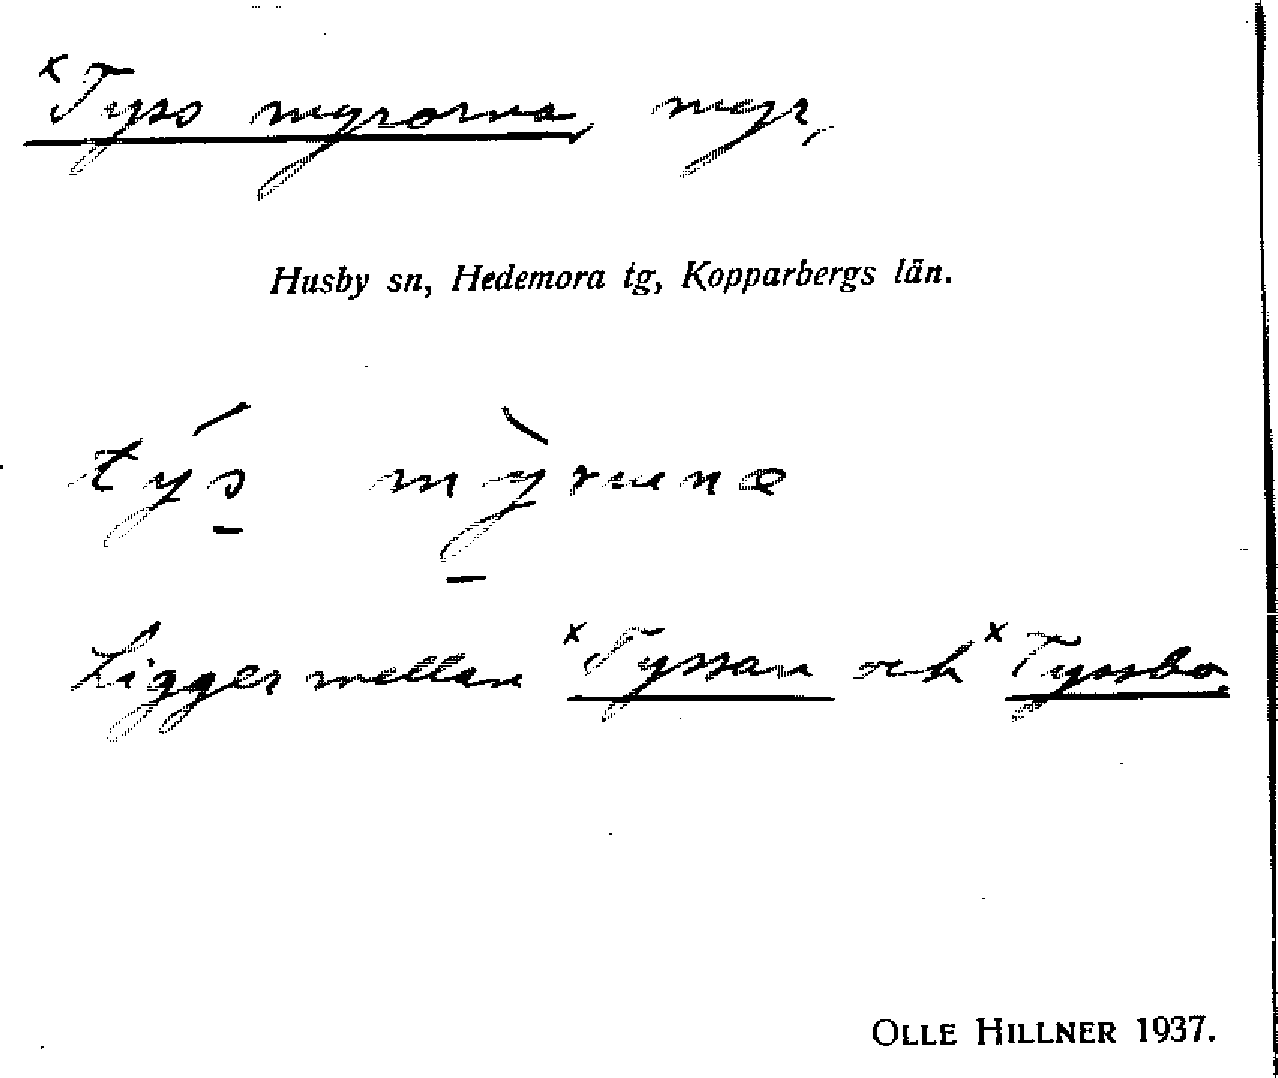 x Tyss myrorna, myr,
Husby sn, Hedemora tg, Kopparbergs län.
týs mỳrunæ
Ligger mellan x Tyssan och x Tyssbo.
OLLE HILLNER 1937.